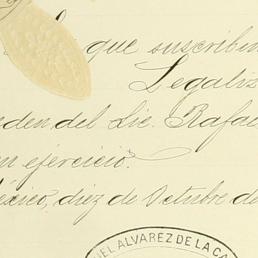 que suscriben
Legaliz
eden del Lic. Rafae
en ejercicio.
éxico, diez de Octubre de
EL ALVAREZ DE LA CA